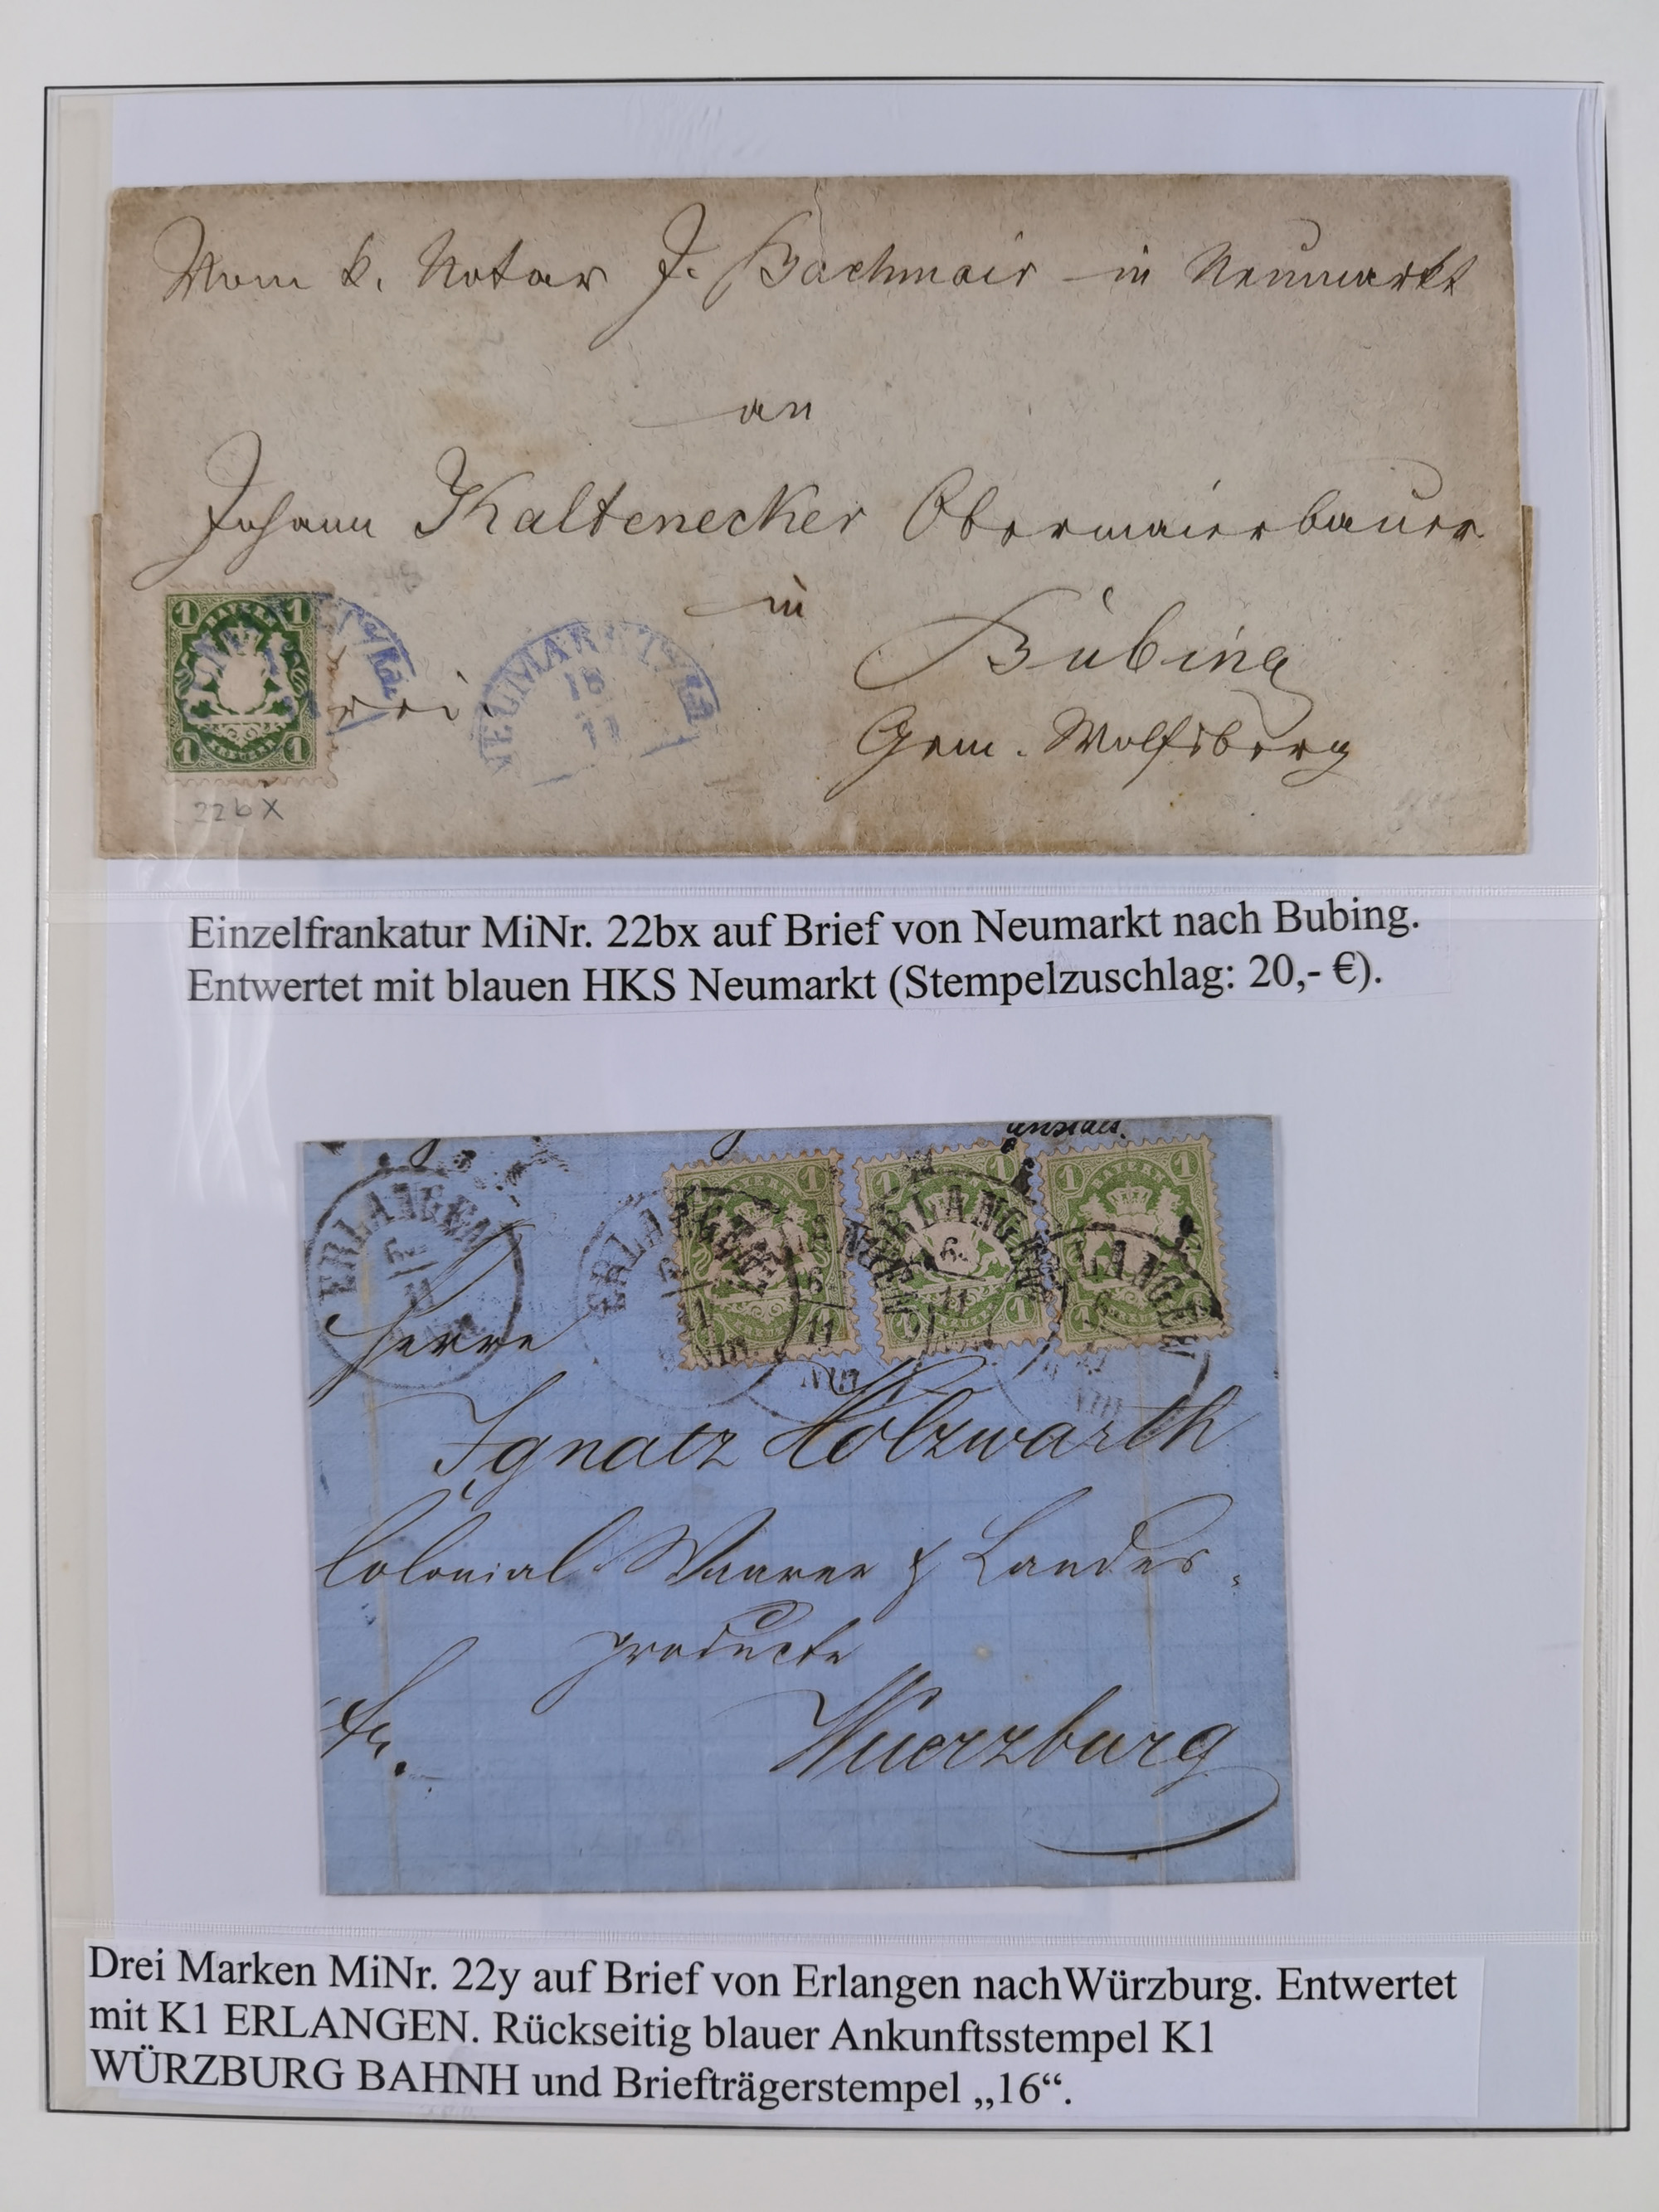 Vom k. Notar J. Bachmair in Neumarkt
an
Johann Kaltenecker Obermaierbauer
in
Bubing
Gem. Wolfsberg
1 BAYERN 1
1 KREUZER 1
NEUMARKT
22bx
Einzelfrankatur MiNr. 22bx auf Brief von Neumarkt nach Bubing.
Entwertet mit blauen HKS Neumarkt (Stempelzuschlag: 20,- €).
ERLANGEN
ERLANGEN
ERLANGEN
6.
11
1 BAYERN 1
1 KREUZER 1
Herrn
Ignatz Holzwarth
Colonial Waaren & Landes
producte
Wuerzburg
Drei Marken MiNr. 22y auf Brief von Erlangen nach Würzburg. Entwertet
mit K1 ERLANGEN. Rückseitig blauer Ankunftsstempel K1
WÜRZBURG BAHNH und Briefträgerstempel „16“.